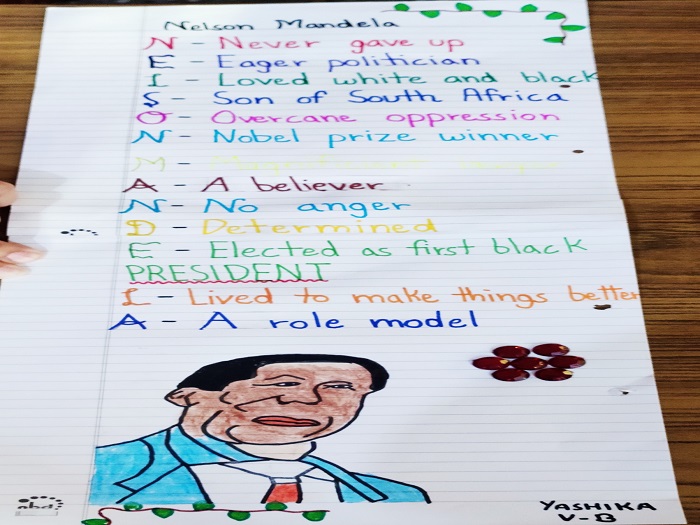 Nelson Mandela
N - Never gave up
E - Eager politician
L - Loved white and black
S - Son of South Africa
O - Overcane oppression
N - Nobel prize winner
M -
A - A believer
N - No anger
D - Determined
E - Elected as first black
PRESIDENT
L - Lived to make things better
A - A role model
abd
YASHIKA
V-B